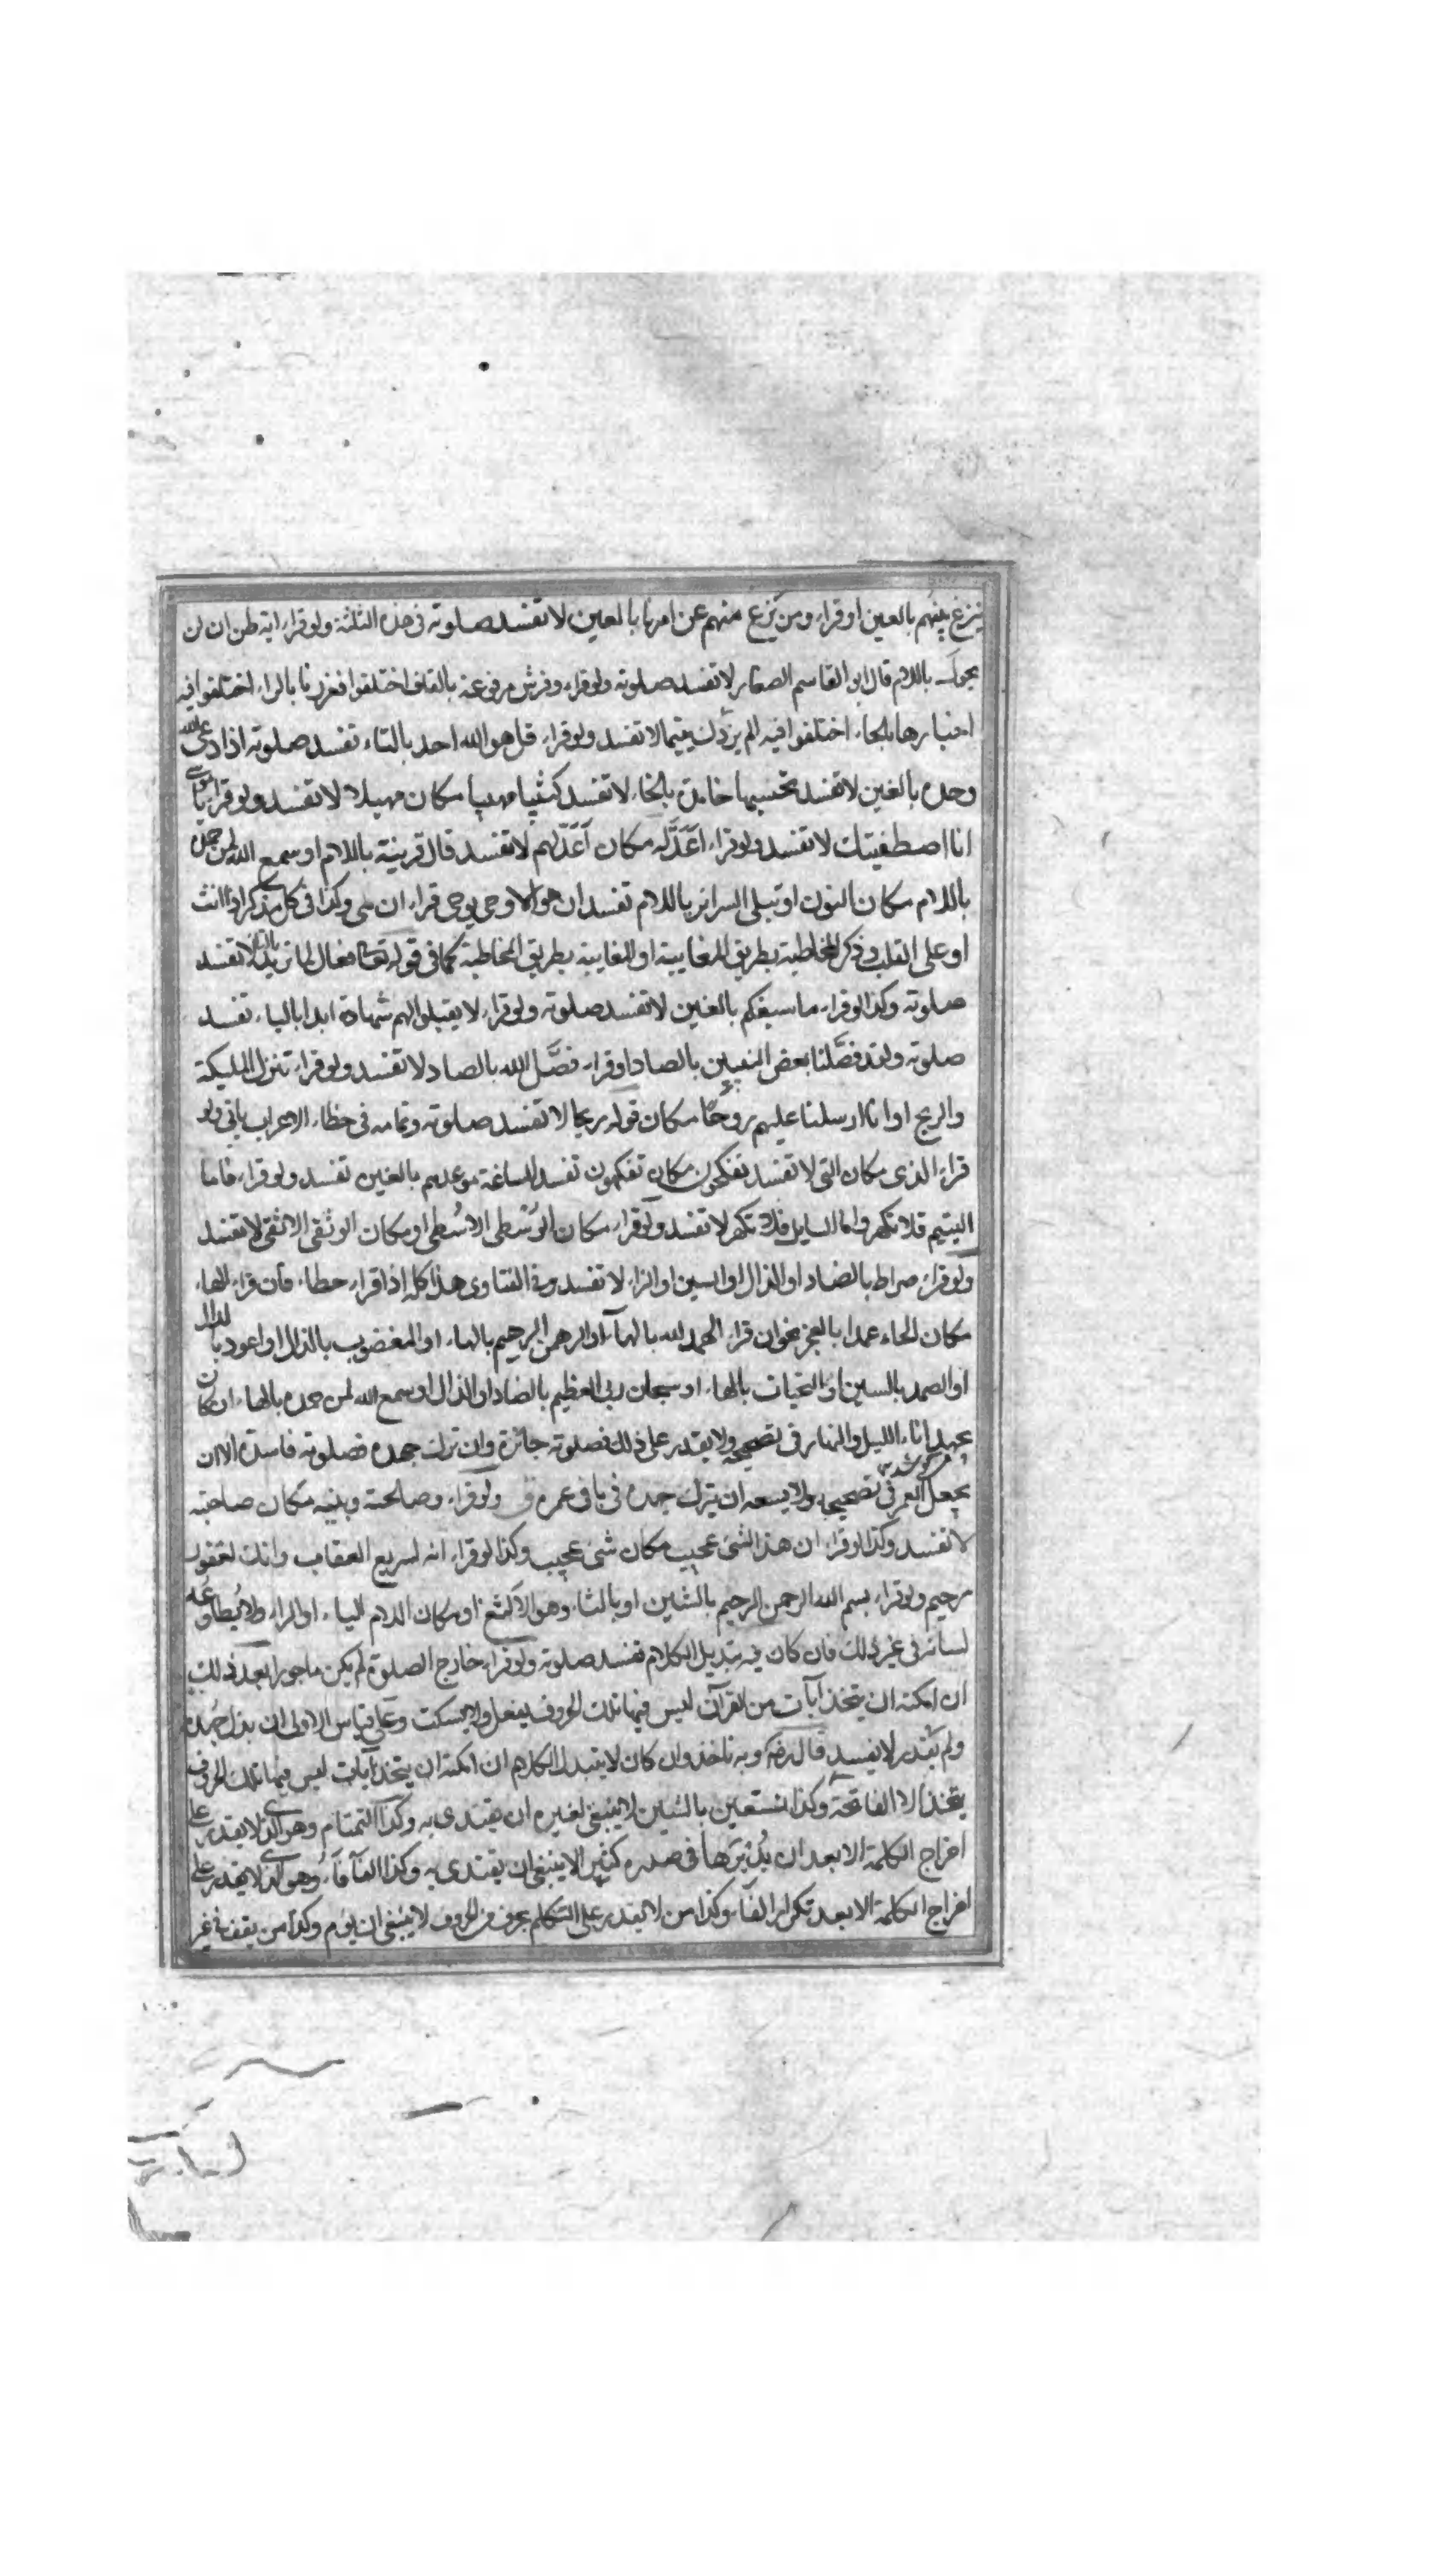 ينزغ بينهم بالعين او قراء ومن يزغ منهم عن امرنا بالعين لا تفسد صلوته فى هذه الثلثة ولو قراء انه ظن ان لن
يحول باللام قال ابو القاسم الصفار لا تفسد صلوته ولو قراء وفرش مرفوعة بالقاف اختلفوا فعززنا بالراء اختلفوا فيه
اخبارها بالحاء اختلفوا فيه الم يزدك يتيما لا تفسد ولو قراء قل هو الله احد بالتاء تفسد صلوته اذا دعى الله
وحده بالغين لا تفسد تحسبها خامدة بالخاء لا تفسد كثيبا مهيبا مكان مهيلا لا تفسد ولو قراء يا موسى
انا اصطفيتك لا تفسد ولو قراء اعدّ له مكان اعدّ لهم لا تفسد قال قرينة باللام او سمع الله لمن حمده
باللام مكان النون او تبلى السرائر باللام تفسد ان هو الا وحى يوحى قراء ان هى وكذا فى كل مذكر اذا انث
او على القلب وذكر المخاطبة بطريق المغايبة او المغايبة بطريق المخاطبة كما فى قوله تعالى فعال لما تريد بالتاء لا تفسد
صلوته وكذا لو قراء ما سبغكم بالغين لا تفسد صلوته ولو قراء لا يقبلوا لهم شهادة ابدا بالياء تفسد
صلوته ولقد فضّلنا بعض النبيين بالصاد او قراء فضّل الله بالصاد لا تفسد ولو قراء تنزل المليكة
والريح او انا ارسلنا عليهم روحًا مكان قوله ريحا لا تفسد صلوته وتمامه فى خطاء الاعراب ياتى ولو
قراء الذى مكان التى لا تفسد تفكحون مكان تفكهون تفسد الساغة موعدهم بالغين تفسد ولو قراء فاما
اليتيم فلا تكهر واما السايل فلا تكهر لا تفسد ولو قراء مكان الوسطى الاسطى او مكان الوثقى الاثقى لا تفسد
ولو قراء صراط بالضاد او الذال او السين او الزاء لا تفسد وفى الفتاوى هذا كله اذا قراء خطاء فان قراء الهاء
مكان الحاء عمدا بالعجز نحو ان قراء الهمد لله بالهاء او الرهمن الرهيم بالهاء او المغضوب بالذال او اعود بالدال
او الصمد بالسين او التحيات بالهاء او سبحان ربى العظيم بالضاد او الذال او سمع الله لمن حمده بالهاء ان كان
يجهد اناء الليل والنهار فى تصحيحه ولا يقدر على ذلك فصلوته جائزة وان ترك جهده فصلوته فاسدة الا ان
يجعل العمر فى تصحيحه ولا يسعه ان يترك جهده فى باقى عمره ولو قراء وصالحته وبنيه مكان صاحبته
لا تفسد وكذا لو قراء ان هذا لشئ عجيب مكان شئ عجيب وكذا لو قراء انه لسريع العقاب وانك لغفور
رحيم ولو قراء بسم الله الرحمن الرحيم بالشين او بالثاء وهو الالثغ او مكان اللام الياء او الراء ولا يطاوعه
لسانه فى غير ذلك فان كان فيه تبديل الكلام تفسد صلوته ولو قراء خارج الصلوة لم يكن ماجورا بعد ذلك
ان امكنه ان يتخذ آيات من القرآن ليس فيها تلك الحروف يفعل والا يسكت وعلى قياس الاولى ان بذل جهده
ولم يقدر لا يفسد قال رضه وبه ناخذ وان كان لا يتبدل الكلام ان امكنه ان يتخذ آيات ليس فيها تلك الحروف
يتخذ الا الفاتحة وكذا نستعين بالشين لا ينبغى لغيره ان يقتدى به وكذا التمتام وهو الذى لا يقدر على
اخراج الكلمة الا بعد ان يدبرها فى صدره كثيرا لا ينبغى ان يقتدى به وكذا الفأفاء وهو الذى لا يقدر على
اخراج الكلمة الا بعد تكرار الفاء وكذا من لا يقدر على التكلم بحرف من الحروف لا ينبغى ان يؤم وكذا من يقف فى غير